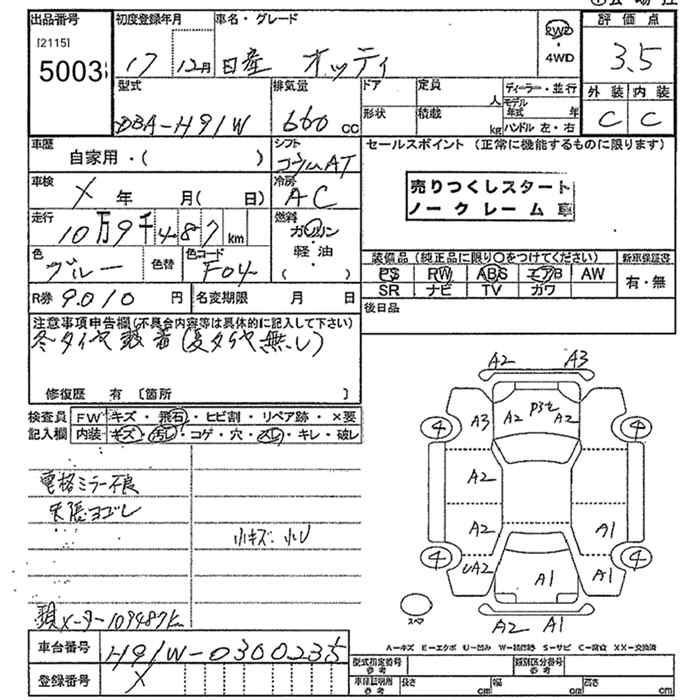 出品番号 初度登録年月 車名・グレード 評価点
[2115]
5003
17 12月 日産 オッティ
2WD
・
4WD
3.5
型式 排気量 ドア 定員 人 ディーラー・並行
外装 内装
DBA-H91W 660 cc
形状 積載 kg モデル年式 年
ハンドル 左・右
C C
車歴 シフト セールスポイント (正常に機能するものに限ります)
自家用・( ) コラムAT
車検 冷房
X 年 月( 日) AC
売りつくしスタート
ノークレーム車
走行 燃料
10万9千487km ガソリン
・
軽油
・
( )
色 色替 色コード
ブルー F04
装備品 (純正品に限り○をつけてください) 新車保証書
PS RW ABS エアB AW 有・無
SR ナビ TV カワ
R券 9010 円 名変期限 月 日
後日品
注意事項申告欄(不具合内容等は具体的に記入して下さい)
冬タイヤ装着(夏タイヤ無し)
修復歴 有 〔箇所 〕
検査員 FW キズ・飛石・ヒビ割・リペア跡・×要
記入欄 内装 キズ・汚レ・コゲ・穴・スレ・キレ・破レ
電格ミラー不良
天張ヨゴレ
小キズ 小U
現メーター109487km
A2 A3
A3 A2 P3セ A2
4 4
A2
A2 A1
4 4
UA2 A1 A1
スペア
A2 A1
A=キズ E=エクボ U=凹み W=補修跡 S=サビ C=腐食 XX=交換済
車台番号 H91W-0300235
登録番号 X
型式指定番号 参考 類別区分番号 参考
車体証明所 参考 長さ cm 幅 cm 高さ cm